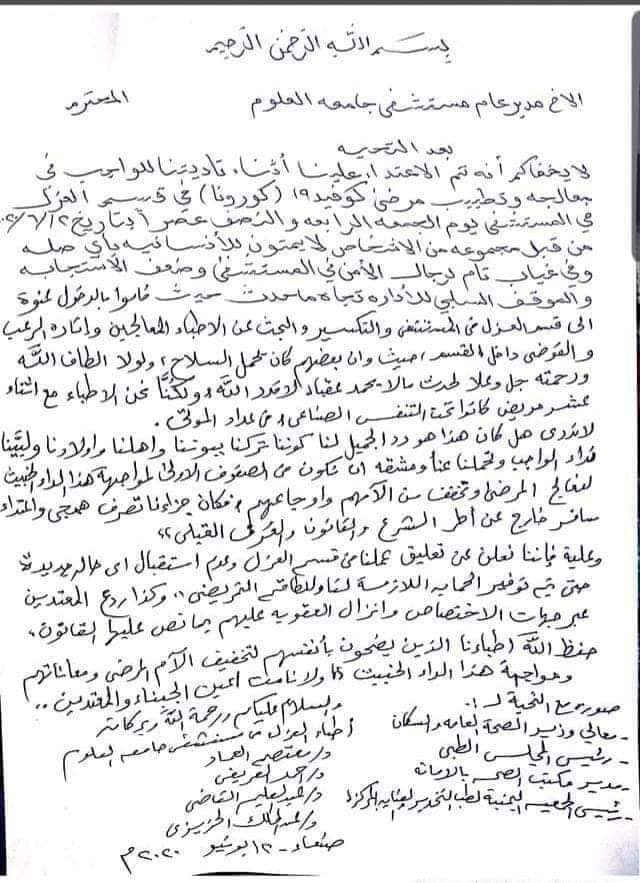 بسم الله الرحمن الرحيم
الاخ مدير عام مستشفى جامعه العلوم المحترم
بعد التحيه
لا يخفاكم أنه تم الاعتداء علينا أثناء تاديتنا للواجب في
معالجه وتطبيب مرضى كوفيد ١٩ (كورونا) في قسم العزل
في المستشفى يوم الجمعه الرابعه والنصف عصرأ بتاريخ
من قبل مجموعه من الاشخاص لا يمتون للأنسانيه بأي صله
وفي غياب تام لرجال الأمن في المستشفى وضعف الأستجابه
والموقف السلبي للأداره تجاه ماحدث حيث قاموا بالدخول عنوة
الى قسم العزل في المستشفى والتكسير والبحث عن الاطباء المعالجين واثاره الرعب
والفوضى داخل القسم، حيث وان بعضهم كان يحمل السلاح، ولولا الطاف الله
ورحمته جل وعلا لحدث مالا يحمد عقباه لاقدر الله، ولكنا نحن الاطباء مع اثناء
عشر مريض كانوا تحت التنفس الصناعي، من عداد الموتى.
لاندري هل كان هذا هو رد الجميل لنا كوننا تركنا بيوتنا واهلنا واولادنا ولبينا
نداء الواجب وتحملنا عنأ ومشقه أن نكون من الصفوف الاولى لمواجهة هذا الداء الخبيث
لنعالج المرضى ونخفف من آلامهم واوجاعهم، فكان جزاءنا تصرف همجي واعتداء
سافر خارج عن أطر الشرع والقانون والعرف القبلي،،
وعلية فإننا نعلن عن تعليق عملنا من قسم العزل وعدم استقبال اي حاله جديدة
حتى يتم توفير الحمايه اللازمة لنا وللطاقم التمريضي،، وكذا ردع المعتدين
عبر جهات الاختصاص وانزال العقوبه عليهم بما نص عليها القانون،
حفظ الله أطباءنا الذين يضحون بأنفسهم لتخفيف الآم المرضى ومعاناتهم
ومواجهة هذا الداء الخبيث ولا نامت اعين الجبناء والمعتدين،،
والسلام عليكم ورحمة الله وبركاته
صوره مع التحية لـ:
- معالي وزير الصحة العامه والسكان
- رئيس المجلس الطبي
- مدير مكتب الصحه بالامانه
- رئيس الجمعيه اليمنية لطب التخدير والعنايه المركزة
أطباء العزل في مستشفى جامعه العلوم
د/ معتصم العماد
د/ احمد العريفي
د/ عبدالعليم القاضي
د/ عبدالملك الحزيزي
صنعاء - ١٢ يونيو ٢٠٢٠م